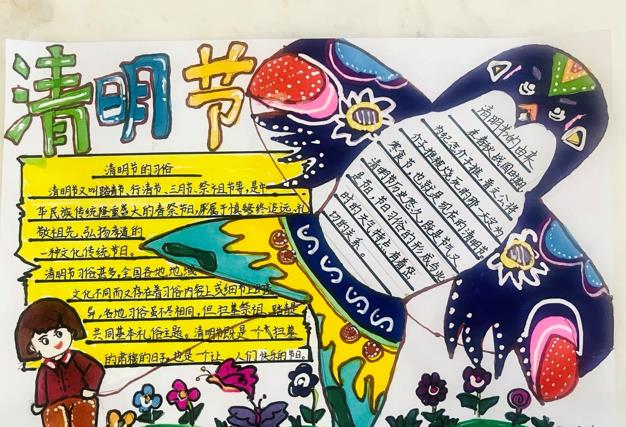 清明节
清明节的习俗
清明节又叫踏青节、行清节、三月节、祭祖节等,是中
华民族传统隆重盛大的春祭节日,属于慎终追远、礼
敬祖先、弘扬孝道的
一种文化传统节日。
清明节习俗甚多,全国各地 地域
文化不同而又存在着习俗内容上或细节上的差
异,各地习俗虽不尽相同,但扫墓祭祖、踏青
共同基本礼俗主题。清明节既是一个 扫墓
的肃穆的日子,也是一个让 人们 快乐的节日。
清明节的由来
在春秋战国时期
为纪念介子推,晋文公将
介子推被烧死的那一天定为
寒食节,也就是现在的清明节。
清明节历史悠久,既是节气又
是节日,节日习俗的形成与此
时的天气特点有着密
切的关系。